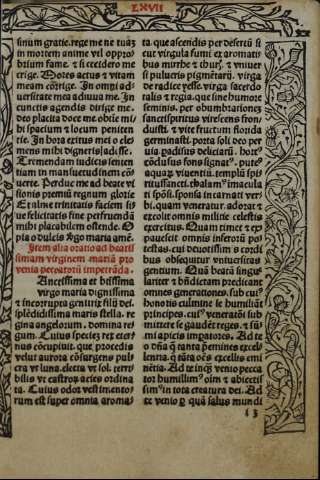 LXVII
sinum gratie. rege me ne tuaʒ
in mortem anime vel oppro
brium fame. ⁊ si cecidero me
erige. Mores actus ⁊ vitam
meam corrige. In omni ad⸗
uersitate mea adiuua me. In
cunctis agendis dirige me.
deo placita doce me. obtie mi
hi spacium ⁊ locum peniten
tie. In hora exitus mei o cle⸗
mens mihi digneris adesse.
Tremendam iudicis senten
tiam in mansuetudinem cō⸗
uerte. Perduc me ad beate vi
sionis premiū regnum glorie
Et alme trinitatis faciem si⸗
ue felicitatis sine perfruendā
mihi placabilem ostende. O
pia o dulcis ꝟgo maria amē.
Item alia oratio ad beatis
simam virginem mariā pro
venia peccatorū impetrāda.
Sanctissima et btissima
virgo maria dignissima
⁊ incorrupta genitrix filij dei.
splēdidissima maris stella. re
gina angelorum. domina re
gum. Cuius speciez rex eter⸗
nus cōcupiuit. que procedis
velut aurora cōsurgens pul⸗
cra vt luna. electa vt sol. terri
bilis vt castroꝝ acies ordina
ta. Cuius odor vestimento⸗
rum est super omnia aroma⸗
ta. que ascendis per desertū si
cut virgula fumi ex aromati⸗
bus mirrhe ⁊ thur̄. ⁊ vniuer
si pulueris pigmētarij. virga
de radice yesse. virga sacerdo
talis ⁊ regia. que sine humore
seminis. per obumbrationeʒ
sanctispiritus virescens fron⸗
duisti. ⁊ vite fructum florida
germinasti. porta soli deo per
uia. padisus deliciarū. hort⁹
cōclusus fons signat⁹. pute⁹
aquaꝝ viuentiū. templū spi⸗
ritussancti. thalam⁹ imacula
ti spōsi. sponsa incarnati ver⸗
bi. quam veneratur. adorat ⁊
excolit omnis militie celestis
exercitus. Quam timet ⁊ ex⸗
pauescit omnis inferoꝝ po⸗
testas. cui deuotissimis cordi
bus obsequitur vniuersitas
gentium. Quā beatā singu⸗
lariter ⁊ bñdictam predicant
omnes generationes. sub cui⁹
honoris culmine se humiliāt
principes. cui⁹ venerātōi sub
mittere se gaudēt reges. ⁊ sū⸗
mi apicis impatores. Ad te
o dña q̄ tanta p̄emines excel⸗
lentia. q̄ tāta oēs excellis emi
nētia. Ad te inq̄ʒ venio pecca
tor humillim⁹ oīm ⁊ abiecti
ssim⁹ in tota creatura dei. Ad
te venio p quā salus mundi
i 3